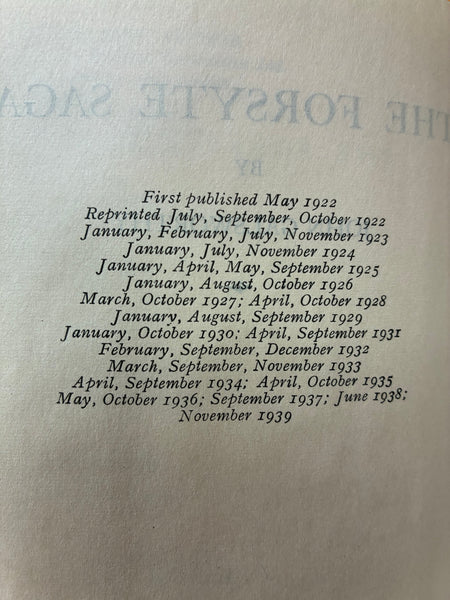 THE FORSYTE SAGA
BY
First published May 1922
Reprinted July, September, October 1922
January, February, July, November 1923
January, July, November 1924
January, April, May, September 1925
January, August, October 1926
March, October 1927; April, October 1928
January, August, September 1929
January, October 1930; April, September 1931
February, September, December 1932
March, September, November 1933
April, September 1934; April, October 1935
May, October 1936; September 1937; June 1938;
November 1939